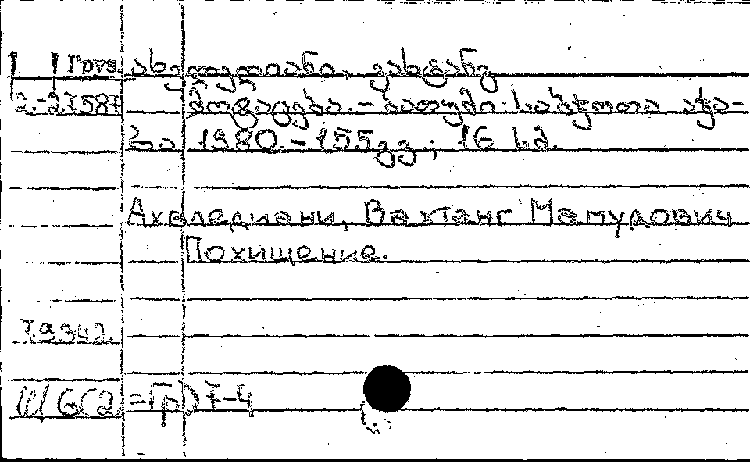 Груз. ახვლედიანი, ვახტანგ
2.-27587 მოტაცება.-ბათუმი: საბჭოთა აჭა-
რა 1980.-155გვ.; 16 სმ.
Ахвледиани, Вахтанг Мамудович
Похищение.
79342.
С(2=Гр)7-4